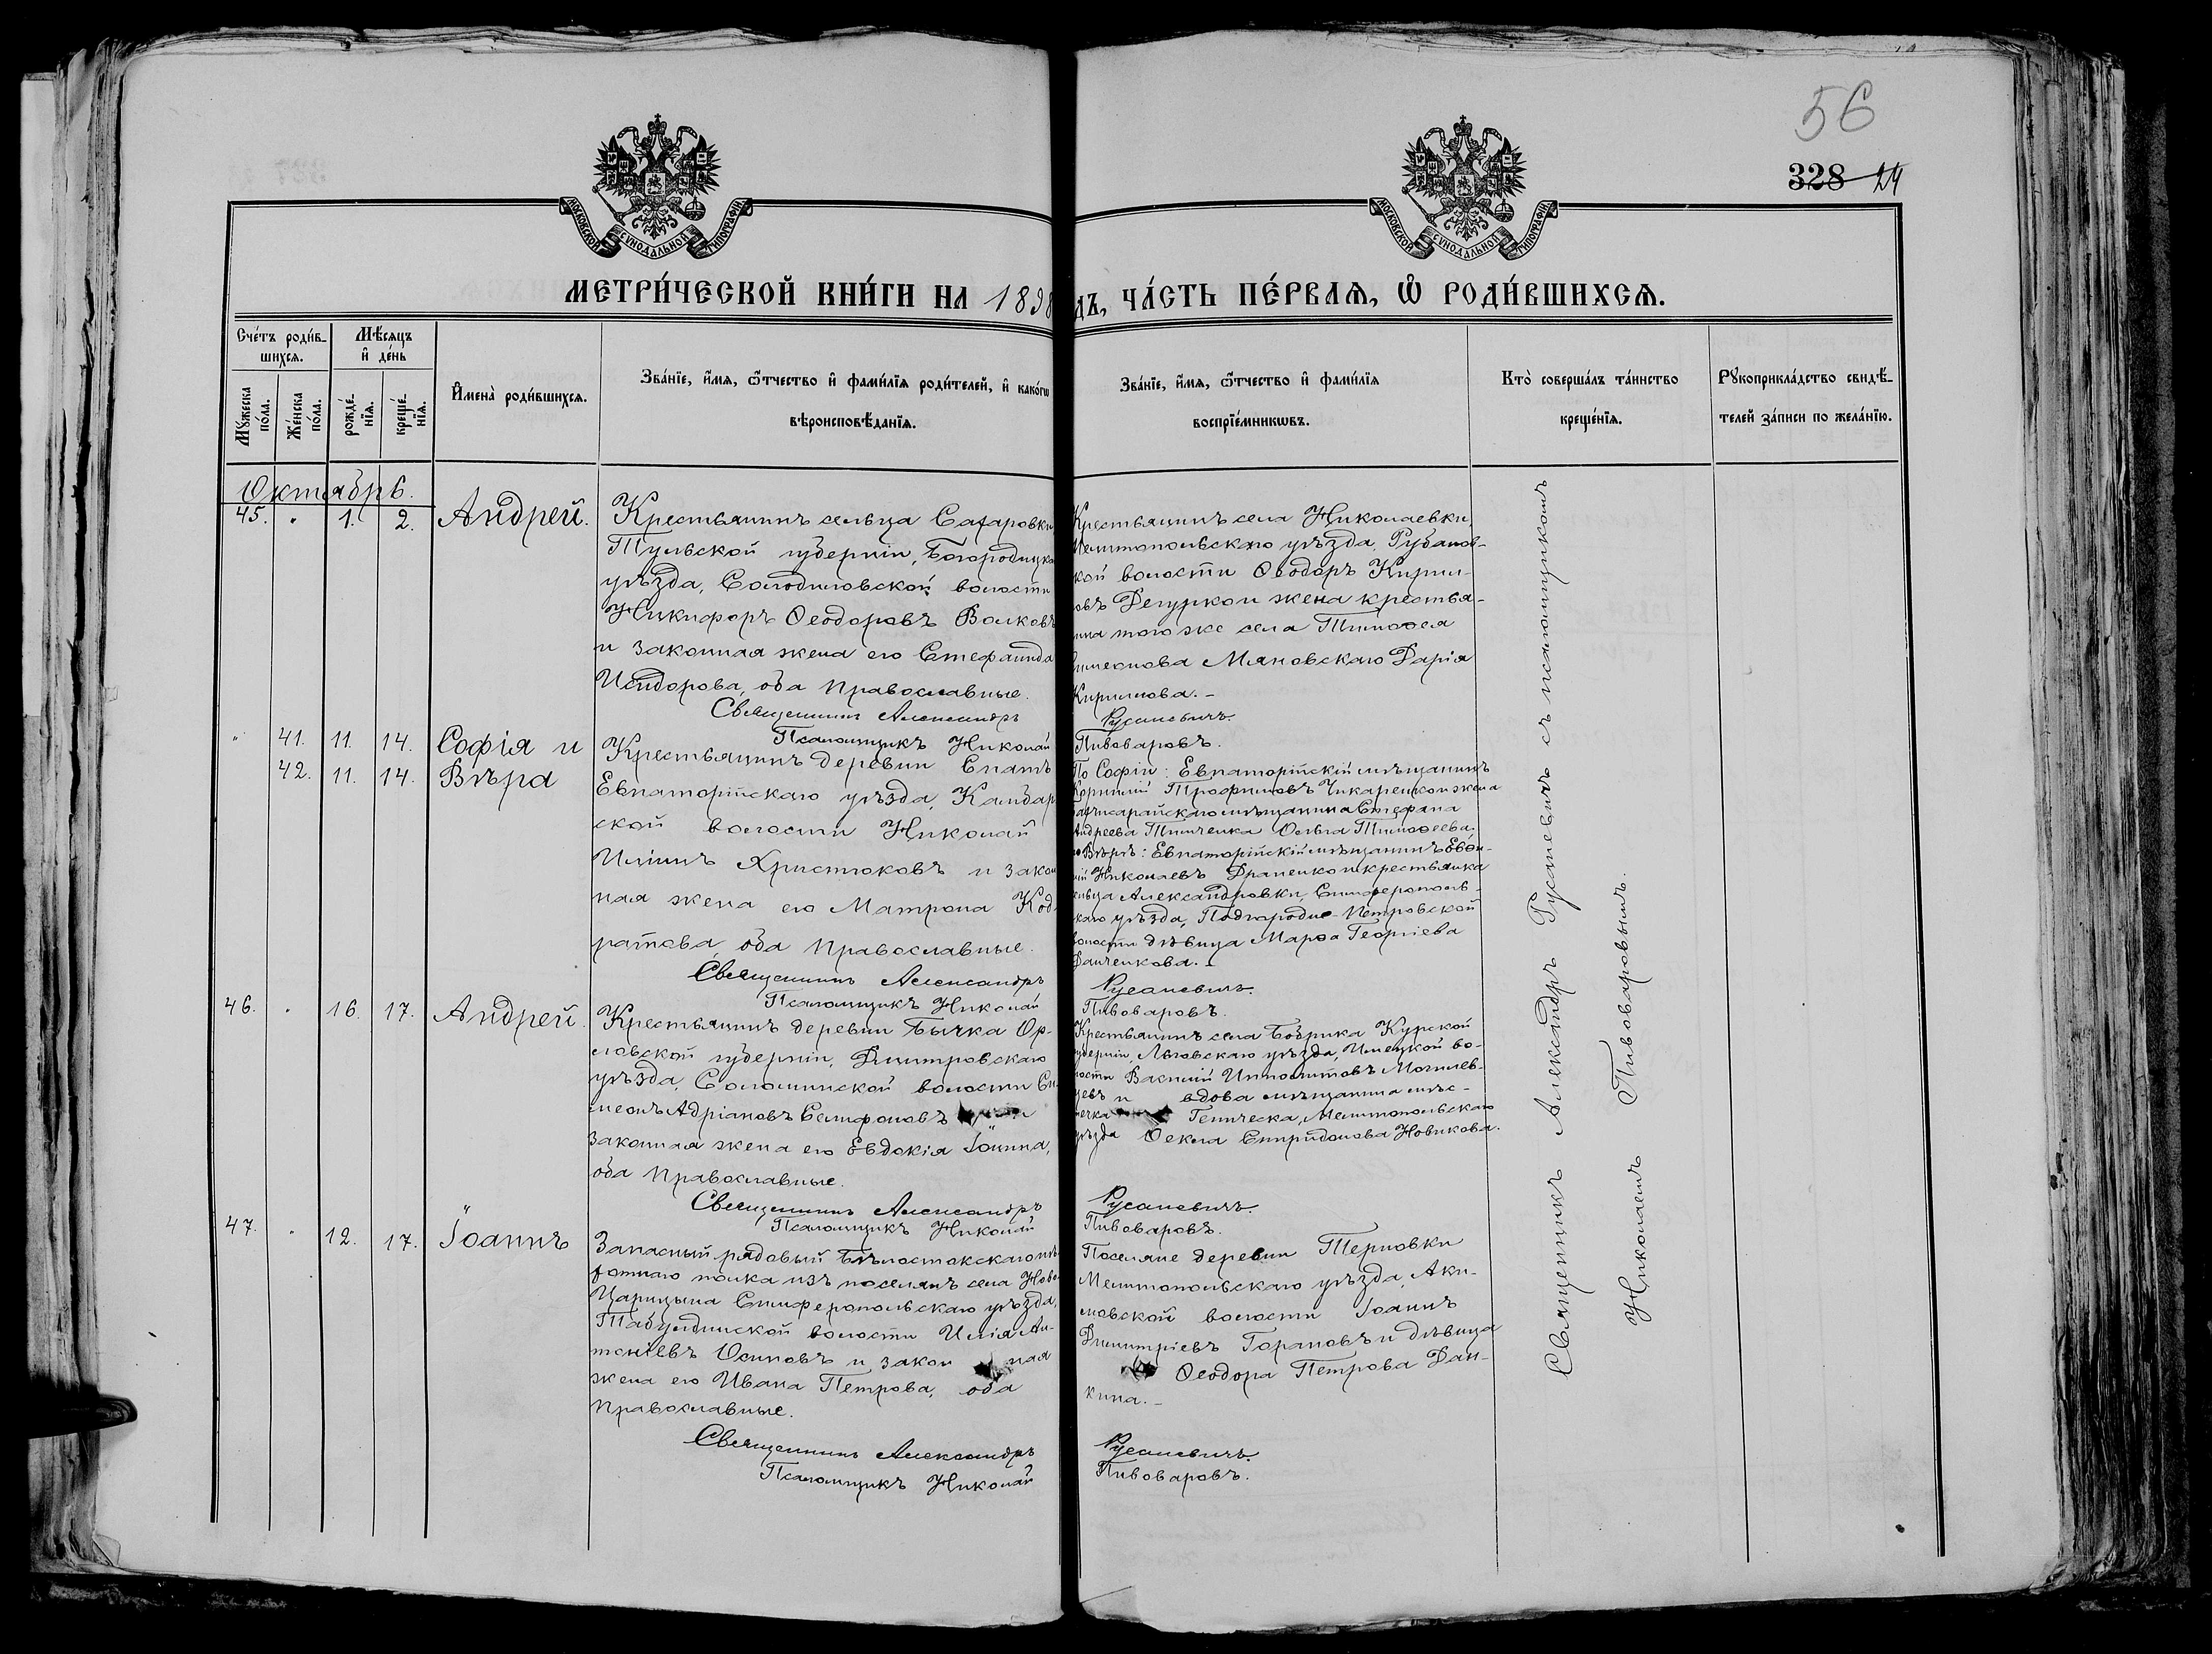 56
328 24
МОСКОВСКОЙ СѴНОДАЛЬНОЙ ТИПОГРАФІИ
МОСКОВСКОЙ СѴНОДАЛЬНОЙ ТИПОГРАФІИ
МЕТРИ́ЧЕСКОЙ КНИ́ГИ НА 1898
ДЪ, ЧА́СТЬ ПЕ́РВАЯ, Ѡ РОДИ́ВШИХСЯ.
Сче́тъ роди́в-
шихся.
Мѣ́сяцъ
и де́нь
Мꙋ́жеска
по́ла.
Же́нска
по́ла.
рожде́-
нїя.
креще́-
нїя.
Имена̀ роди́вшихся.
Зва́нїе, и́мя, ѻ҆́тчество и фами́лїя роди́телей, и како́гѡ
вѣроисповѣ́данїя.
Зва́нїе, и́мя, ѻ҆́тчество и фами́лїя
воспрїе́мникѡвъ.
Кто̀ соверша́лъ та́инство
креще́нїя.
Рꙋкоприкла́дство свидѣ́-
телей за́писи по жела́нїю.
Октябрь.
45. " 1. 2. Андрей.
Крестьянинъ сельца Сахаровки
Тульской губерніи, Богородицка
уѣзда, Солодиловской волости
Никифоръ Ѳеодоровъ Волковъ
и законная жена его Стефанида
Исидорова, оба православные.
Священникъ Александръ
Псаломщикъ Николай
Крестьянинъ села Николаевки,
Мелитопольскаго уѣзда, Рубанов-
кой волости Ѳеодоръ Кирил-
овъ Дегурко и жена крестья-
нина того же села Тимоѳея
Симеонова Мяновскаго Дарія
Кириллова.-
Русаневичъ.
Пивоваровъ.
" 41. 11. 14. Софія и
42. 11. 14. Вѣра
Крестьянинъ деревни Спатъ
Евпаторійскаго уѣзда, Камбар
ской волости Николай
Иліинъ Христюковъ и закон
ная жена его Матрона Код-
ратова, оба православные.
Священникъ Александръ
Псаломщикъ Николай
По Софіи: Евпаторійскій мѣщанинъ
Корнилій Трофимовъ Чикаренко и жена
Бахчисарайскаго мѣщанина Стефана
Андреева Тимченка Ольга Тимоѳеева.
по Вѣрѣ: Евпаторійскій мѣщанинъ Евѳи-
мій Николаевъ Драпенко и крестьянка
сельца Александровки, Симферополь-
скаго уѣзда, Подгородне-Петровской
волости дѣвица Марѳа Георгіева
Данченкова.-
Русаневичъ.
Пивоваровъ.
46. " 16. 17. Андрей.
Крестьянинъ деревни Бычка Ор-
ловской губерніи, Дмитровскаго
уѣзда, Соломинской волости Си-
меонъ Адріановъ Самфоновъ и
законная жена его Евдокія Іоанна,
оба православные.
Священникъ Александръ
Псаломщикъ Николай
Крестьянинъ села Бобрика Курской
губерніи, Льговскаго уѣзда, Ивницкой во-
лости Василій Ипполитовъ Могилев-
цевъ и вдова мѣщанина мѣс-
течка Геническа, Мелитопольскаго
уѣзда Ѳекла Спиридонова Новикова.
Русаневичъ.
Пивоваровъ.
47. " 12. 17. Іоаннъ
Запасный рядовый Бѣлостокскаго пѣ-
хотнаго полка изъ поселянъ села Ново-
Царицына Симферопольскаго уѣзда,
Табулдинской волости Илія Ан-
тоніевъ Осиповъ и закон ная
жена его Ивана Петрова, оба
православные.
Священникъ Александръ
Псаломщикъ Николай
Поселяне деревни Терновки
Мелитопольскаго уѣзда, Аки-
мовской волости Іоаннъ
Димитріевъ Горановъ и дѣвица
Ѳеодора Петрова Дан-
кина.-
Русаневичъ.
Пивоваровъ.
Священникъ Александръ Русаневичъ съ псаломщикомъ
Николаемъ Пивоваровымъ.